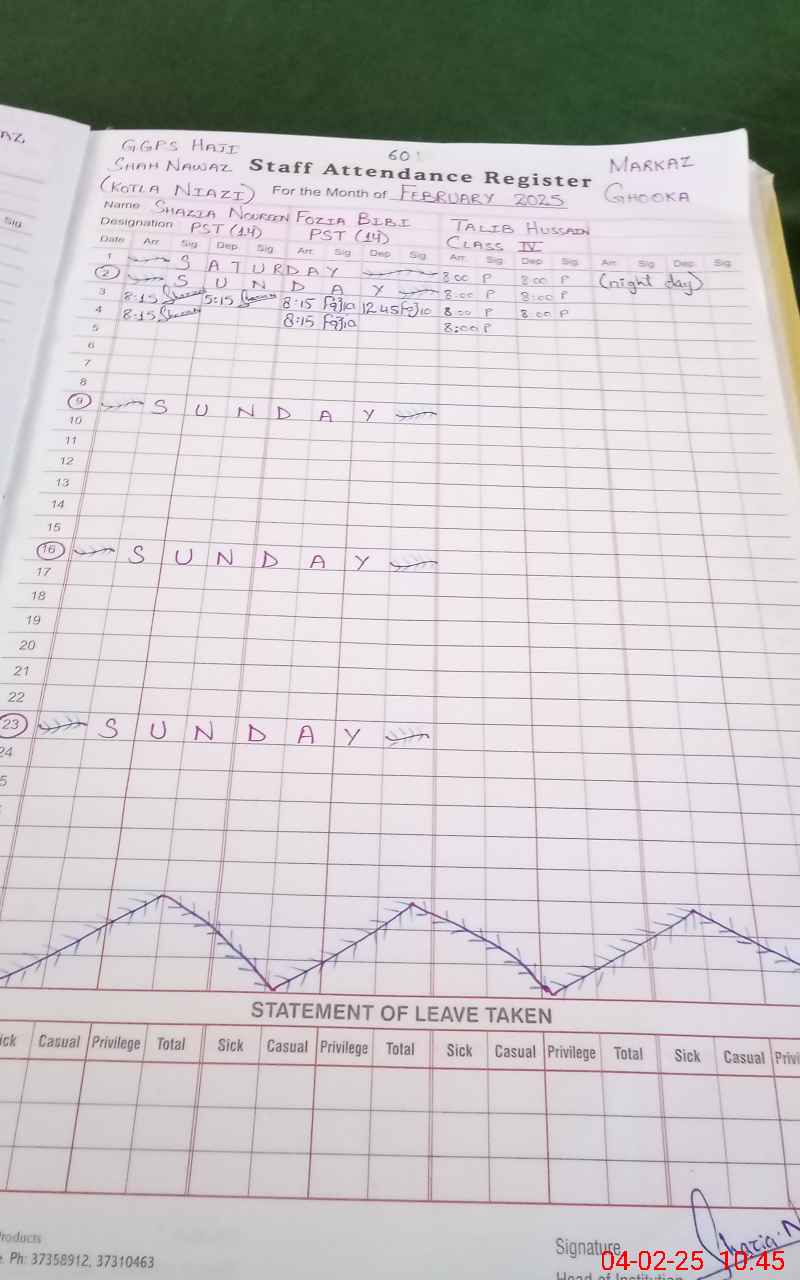 AZ,
Sig
GGPS HAJI
SHAH NAWAZ
(KOTLA NIAZI)
60
Staff Attendance Register
For the Month of FEBRUARY 2025
MARKAZ
GHOOKA
Name SHAZIA NOUREEN FOZIA BIBI TALIB HUSSAIN
Designation PST (14) PST (14) CLASS IV
Date Arr Sig Dep. Sig Arr. Sig Dep Sig Arr. Sig Dep Sig Arr. Sig Dep. Sig
1 SATURDAY 8:00 P 8:00 P (night day)
2 SUNDAY 8:00 P 8:00 P
3 8:15 5:15 8:15 Fozia 12:45 Fozia 8:00 P 8:00 P
4 8:15 8:15 Fozia 8:00 P
5
6
7
8
9 SUNDAY
10
11
12
13
14
15
16 SUNDAY
17
18
19
20
21
22
23 SUNDAY
24
5
STATEMENT OF LEAVE TAKEN
ick Casual Privilege Total Sick Casual Privilege Total Sick Casual Privilege Total Sick Casual Privi
Products
e. Ph: 37358912, 37310463
Signature Shazia.N
Head of Institution
04-02-25 10:45